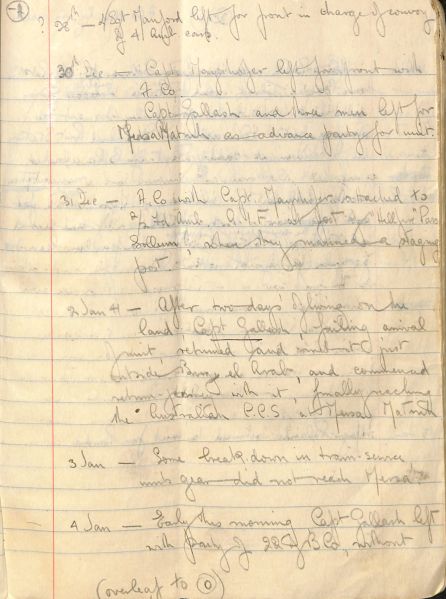 ? 28th — S/Sgt Manford left for front in charge of convoy
of 4 Amb. cars.
30th Dec — Capt. Mayrhofer left for front with
A. Co
Capt. Gallash and three men left for
Mersa Matruh as advance party for unit.
31 Dec — A. Co with Capt. Mayrhofer attached to
Fd Amb. at foot of "Hellfire" Pass
Sollum, where they manned a staging
post.
2 Jan 41 — After two days living on the
land Capt Gallash, failing arrival
of unit, returned and met it just
outside Burg el Arab, and commenced
return journey with it, finally reaching
the Australian C.C.S at Mersa Matruh
3 Jan — Some break down in train-service
units gear did not reach Mersa.
4 Jan — Early this morning Capt Gallash left
with party of 22 of B Co, without
(overleaf to 0)